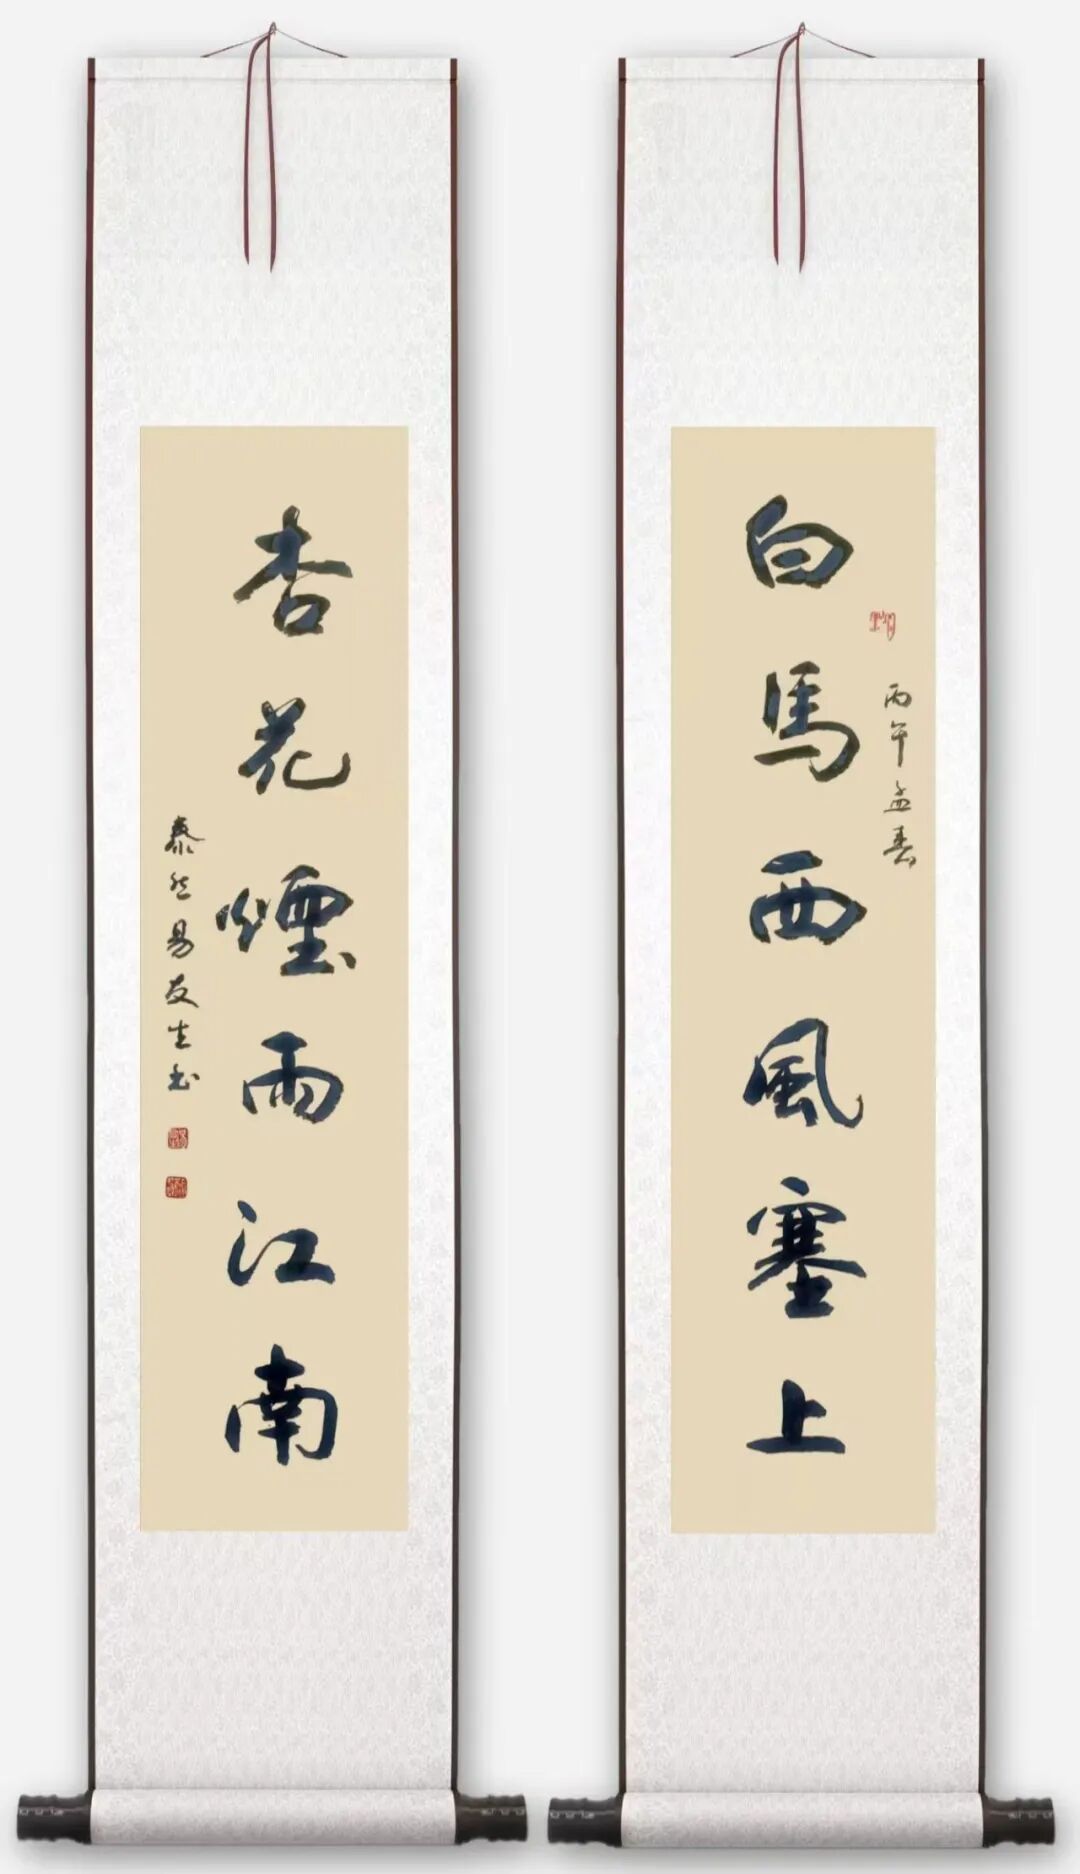 白馬西風塞上
丙午孟春
杏花煙雨江南
泰然易友生书